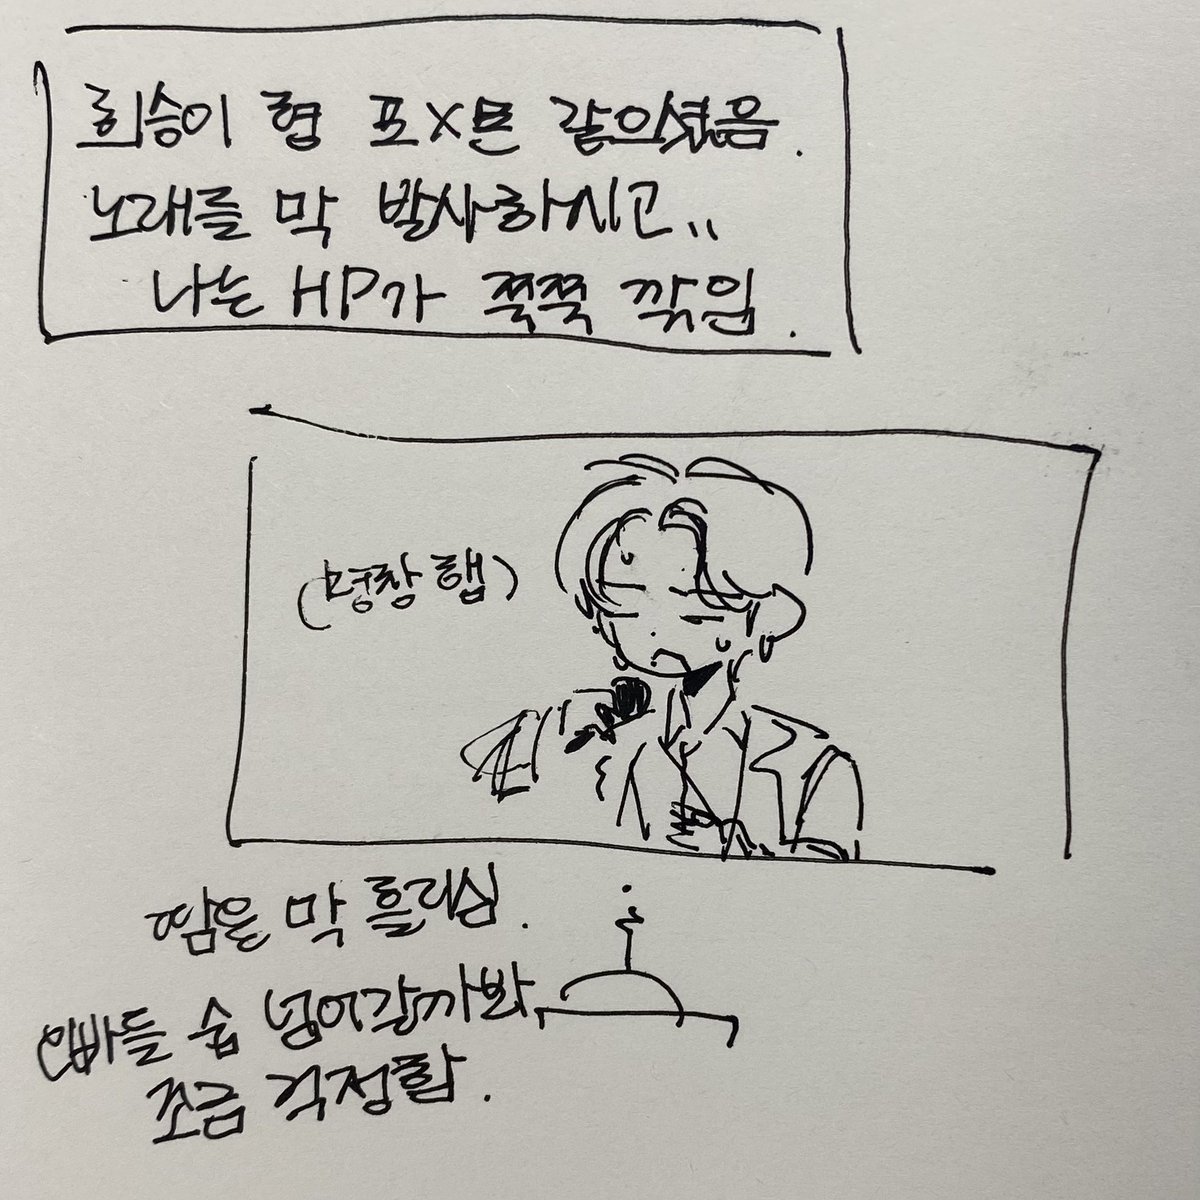 희승이 형 포X몬 같으셨음.
노래를 막 발사하시고..
나는 HP가 쭉쭉 깎임.
(덩창 햅)
땀은 막 흘리심.
오빠들 숨 넘어갈까봐
조금 걱정함.